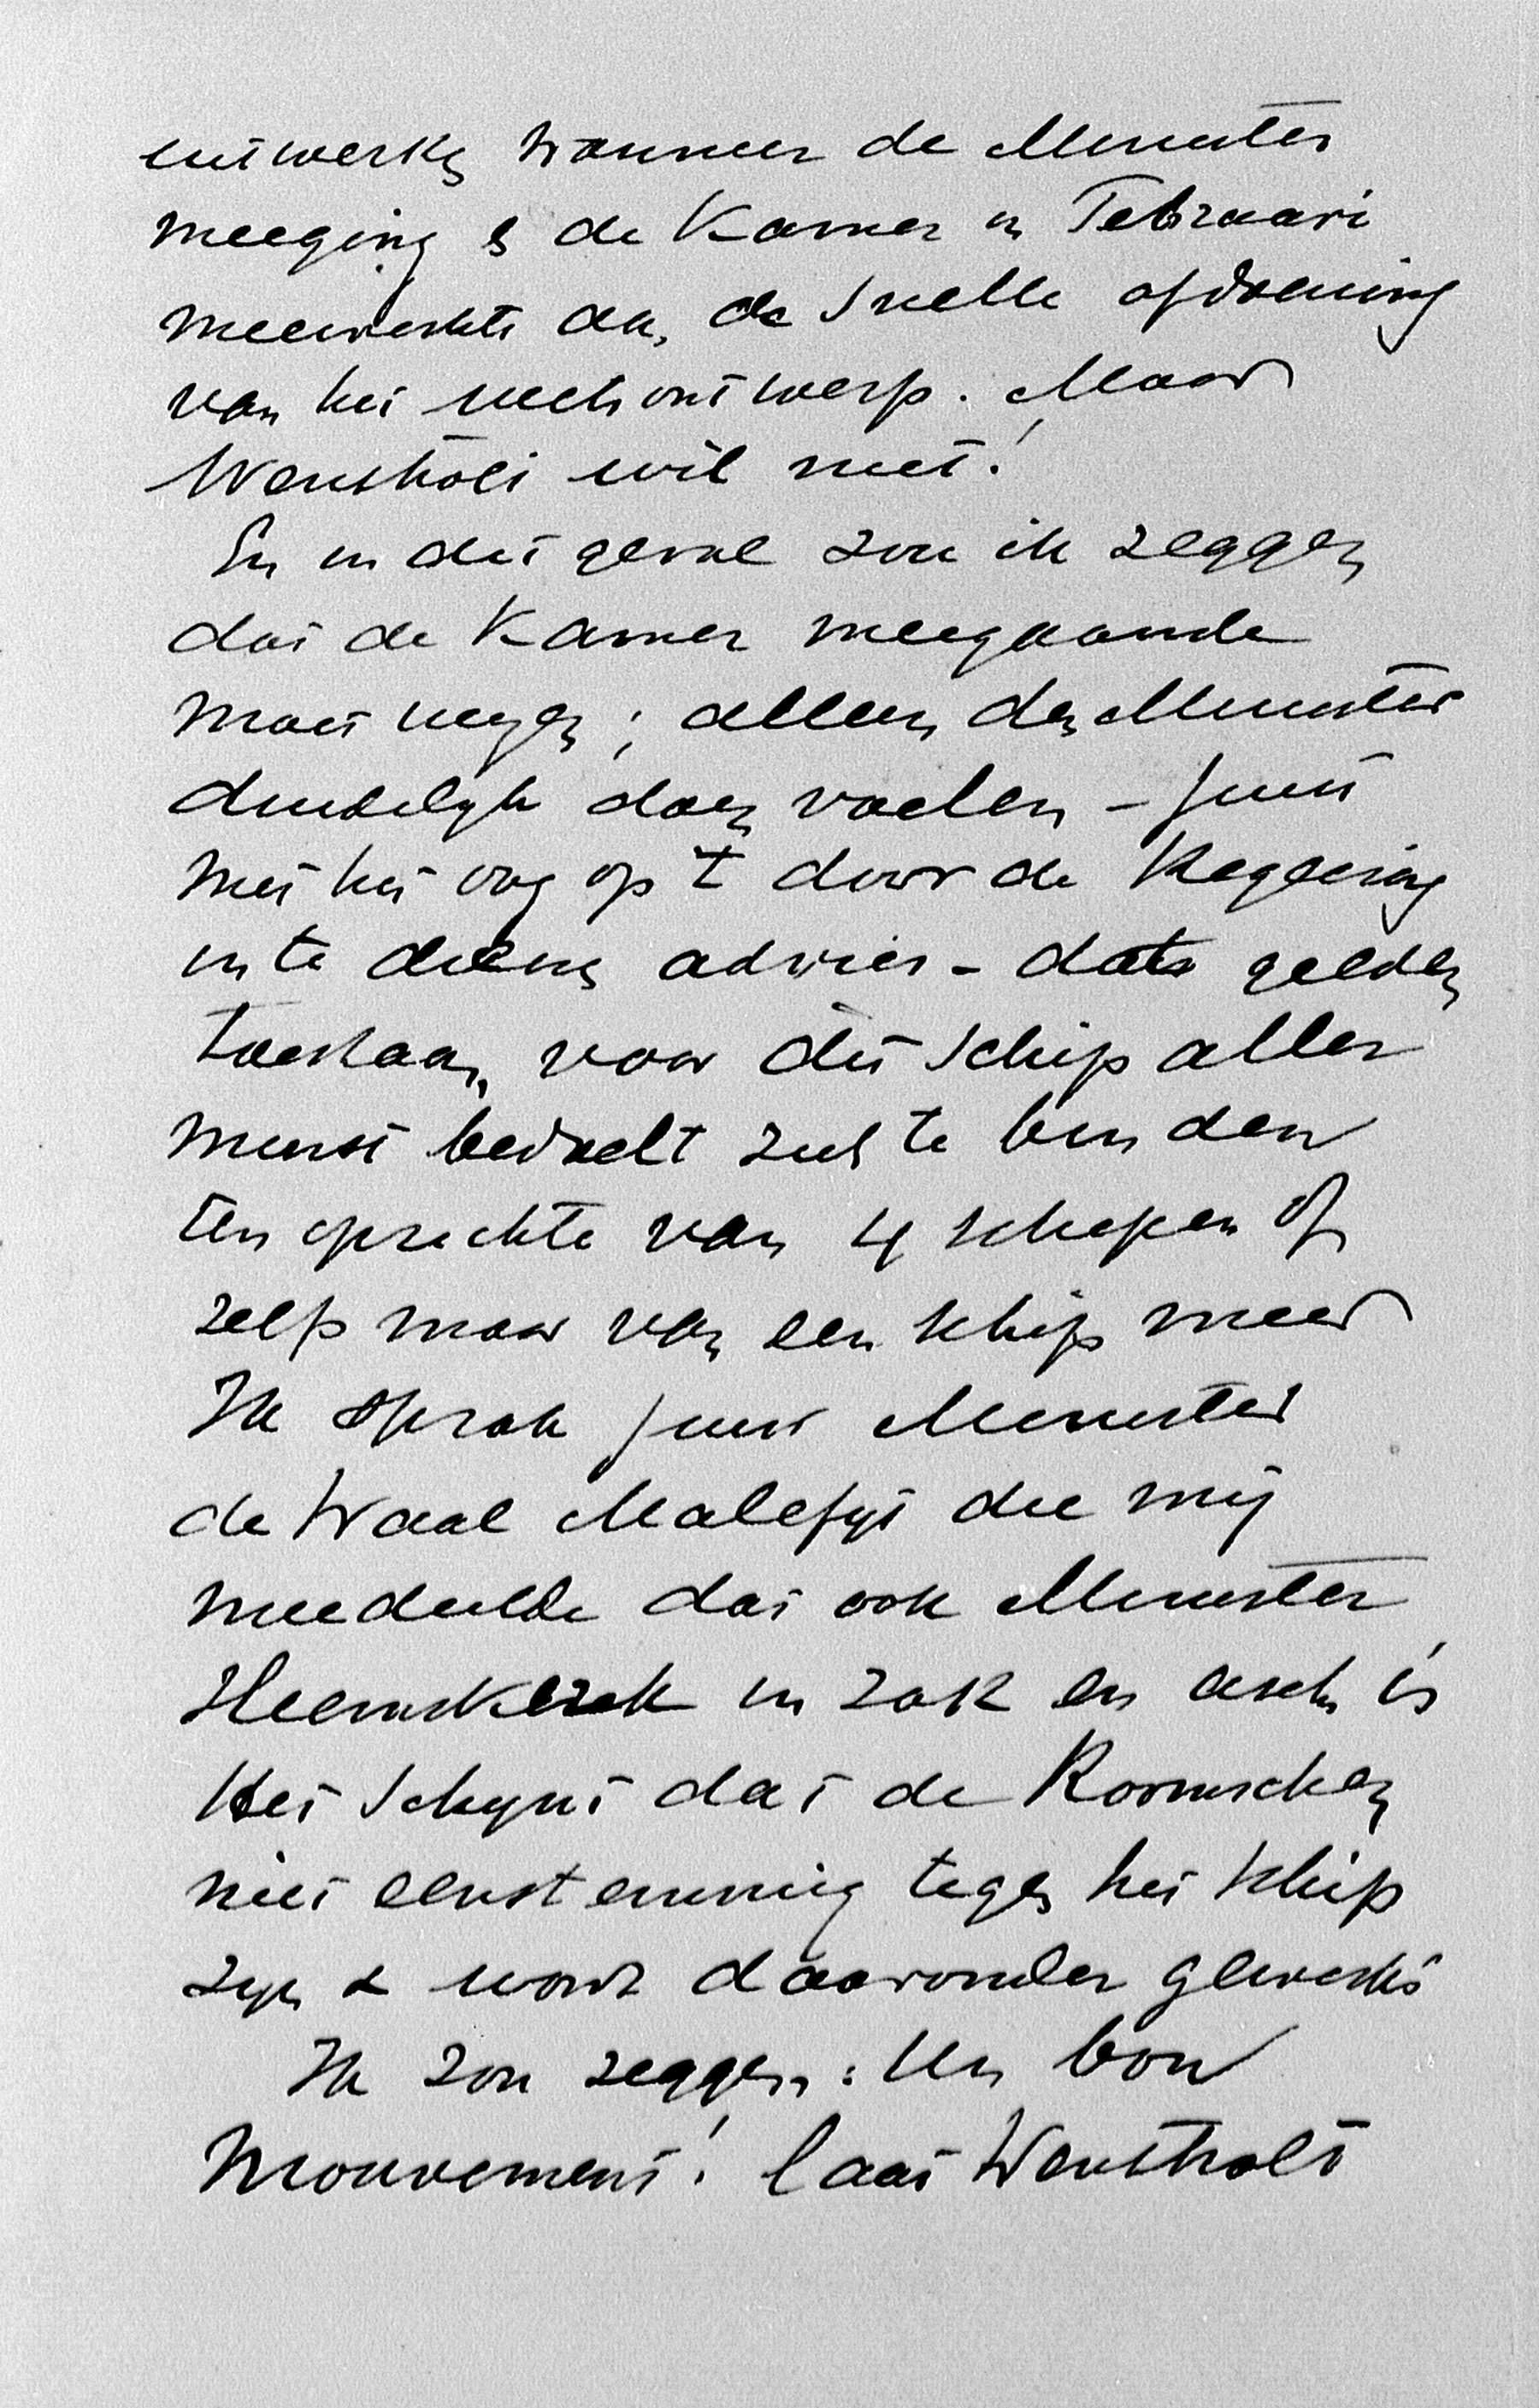 uitwerkg wanneer de Minister
meeging & de Kamer in Februari
meewerkte aan de snelle afdoening
van het wetsontwerp. Maar
Wentholt wil niet!
En in dit geval zou ik zeggen
dat de Kamer meegaande
moet wezen; alleen den Minister
duidelyk doen voelen - juist
met het oog op 't door de Regeering
in te dienen advies - dat gelden
toestaan voor dit schip aller
minst bedoelt zich te binden
ten opzichte van 4 schepen of
zelfs maar van een schip meer
Ik sprak juist Minister
de Waal Malefyt die mij
meedeelde dat ook Minister
Heemskerk in zak en asch is
Het schynt dat de Roomschen
niet eenstemmig tegen het schip
zyn & word daaronder gewerkt
Ik zou zeggen: Un bon
Mouvement! laat Wentholt